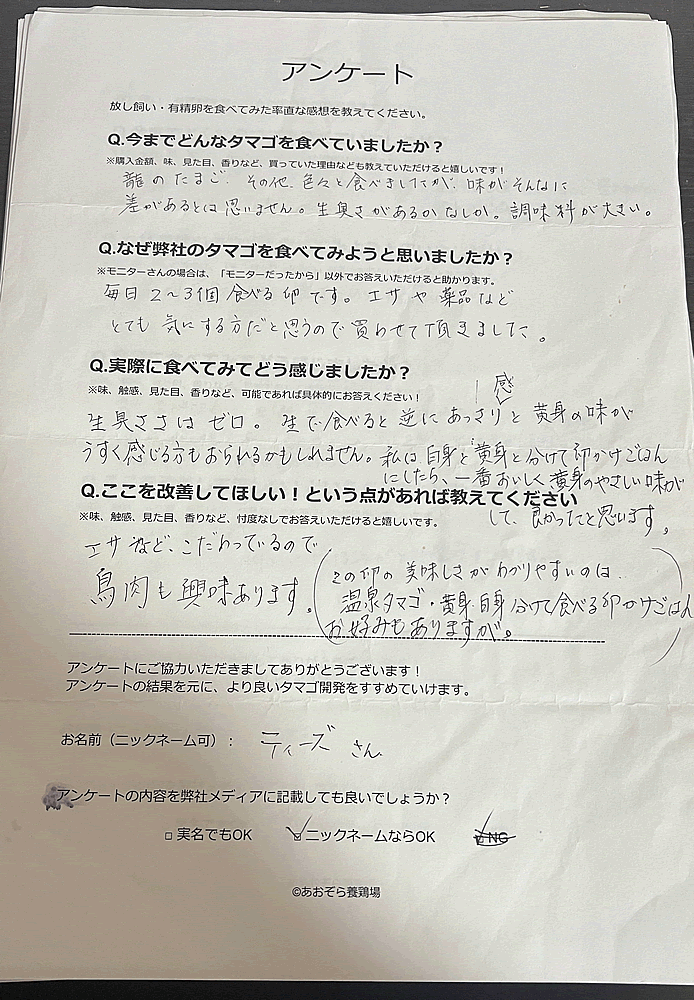 アンケート
放し飼い・有精卵を食べてみた率直な感想を教えてください。
Q.今までどんなタマゴを食べていましたか？
※購入金額、味、見た目、香りなど、買っていた理由なども教えていただけると嬉しいです！
龍のたまご、その他、色々と食べましたが、味がそんなに
差があるとは思いません。生臭さがあるかなしか。調味料が大きい。
Q.なぜ弊社のタマゴを食べてみようと思いましたか？
※モニターさんの場合は、「モニターだったから」以外でお答えいただけると助かります。
毎日2〜3個食べる卵です。エサや薬品など
とても気にする方だと思うので買わせて頂きました。
Q.実際に食べてみてどう感じましたか？
※味、触感、見た目、香りなど、可能であれば具体的にお答えください！
感
生臭ささはゼロ。生で食べると逆にあっさりと黄身の味が
うすく感じる方もおられるかもしれません。私は白身と黄身と分けて卵かけごはん
にしたら、一番おいしく黄身のやさしい味が
Q.ここを改善してほしい！という点があれば教えてください
して、良かったと思います。
※味、触感、見た目、香りなど、忖度なしでお答えいただけると嬉しいです。
エサなど、こだわっているので
鳥肉も興味あります。
(この卵の美味しさがわかりやすいのは、
温泉タマゴ・黄身白身分けて食べる卵かけごはん
お好みもありますが。)
アンケートにご協力いただきましてありがとうございます！
アンケートの結果を元に、より良いタマゴ開発をすすめていけます。
お名前（ニックネーム可）： ティーズ さん
アンケートの内容を弊社メディアに記載しても良いでしょうか？
□ 実名でもOK ☑ ニックネームならOK NG
©あおぞら養鶏場